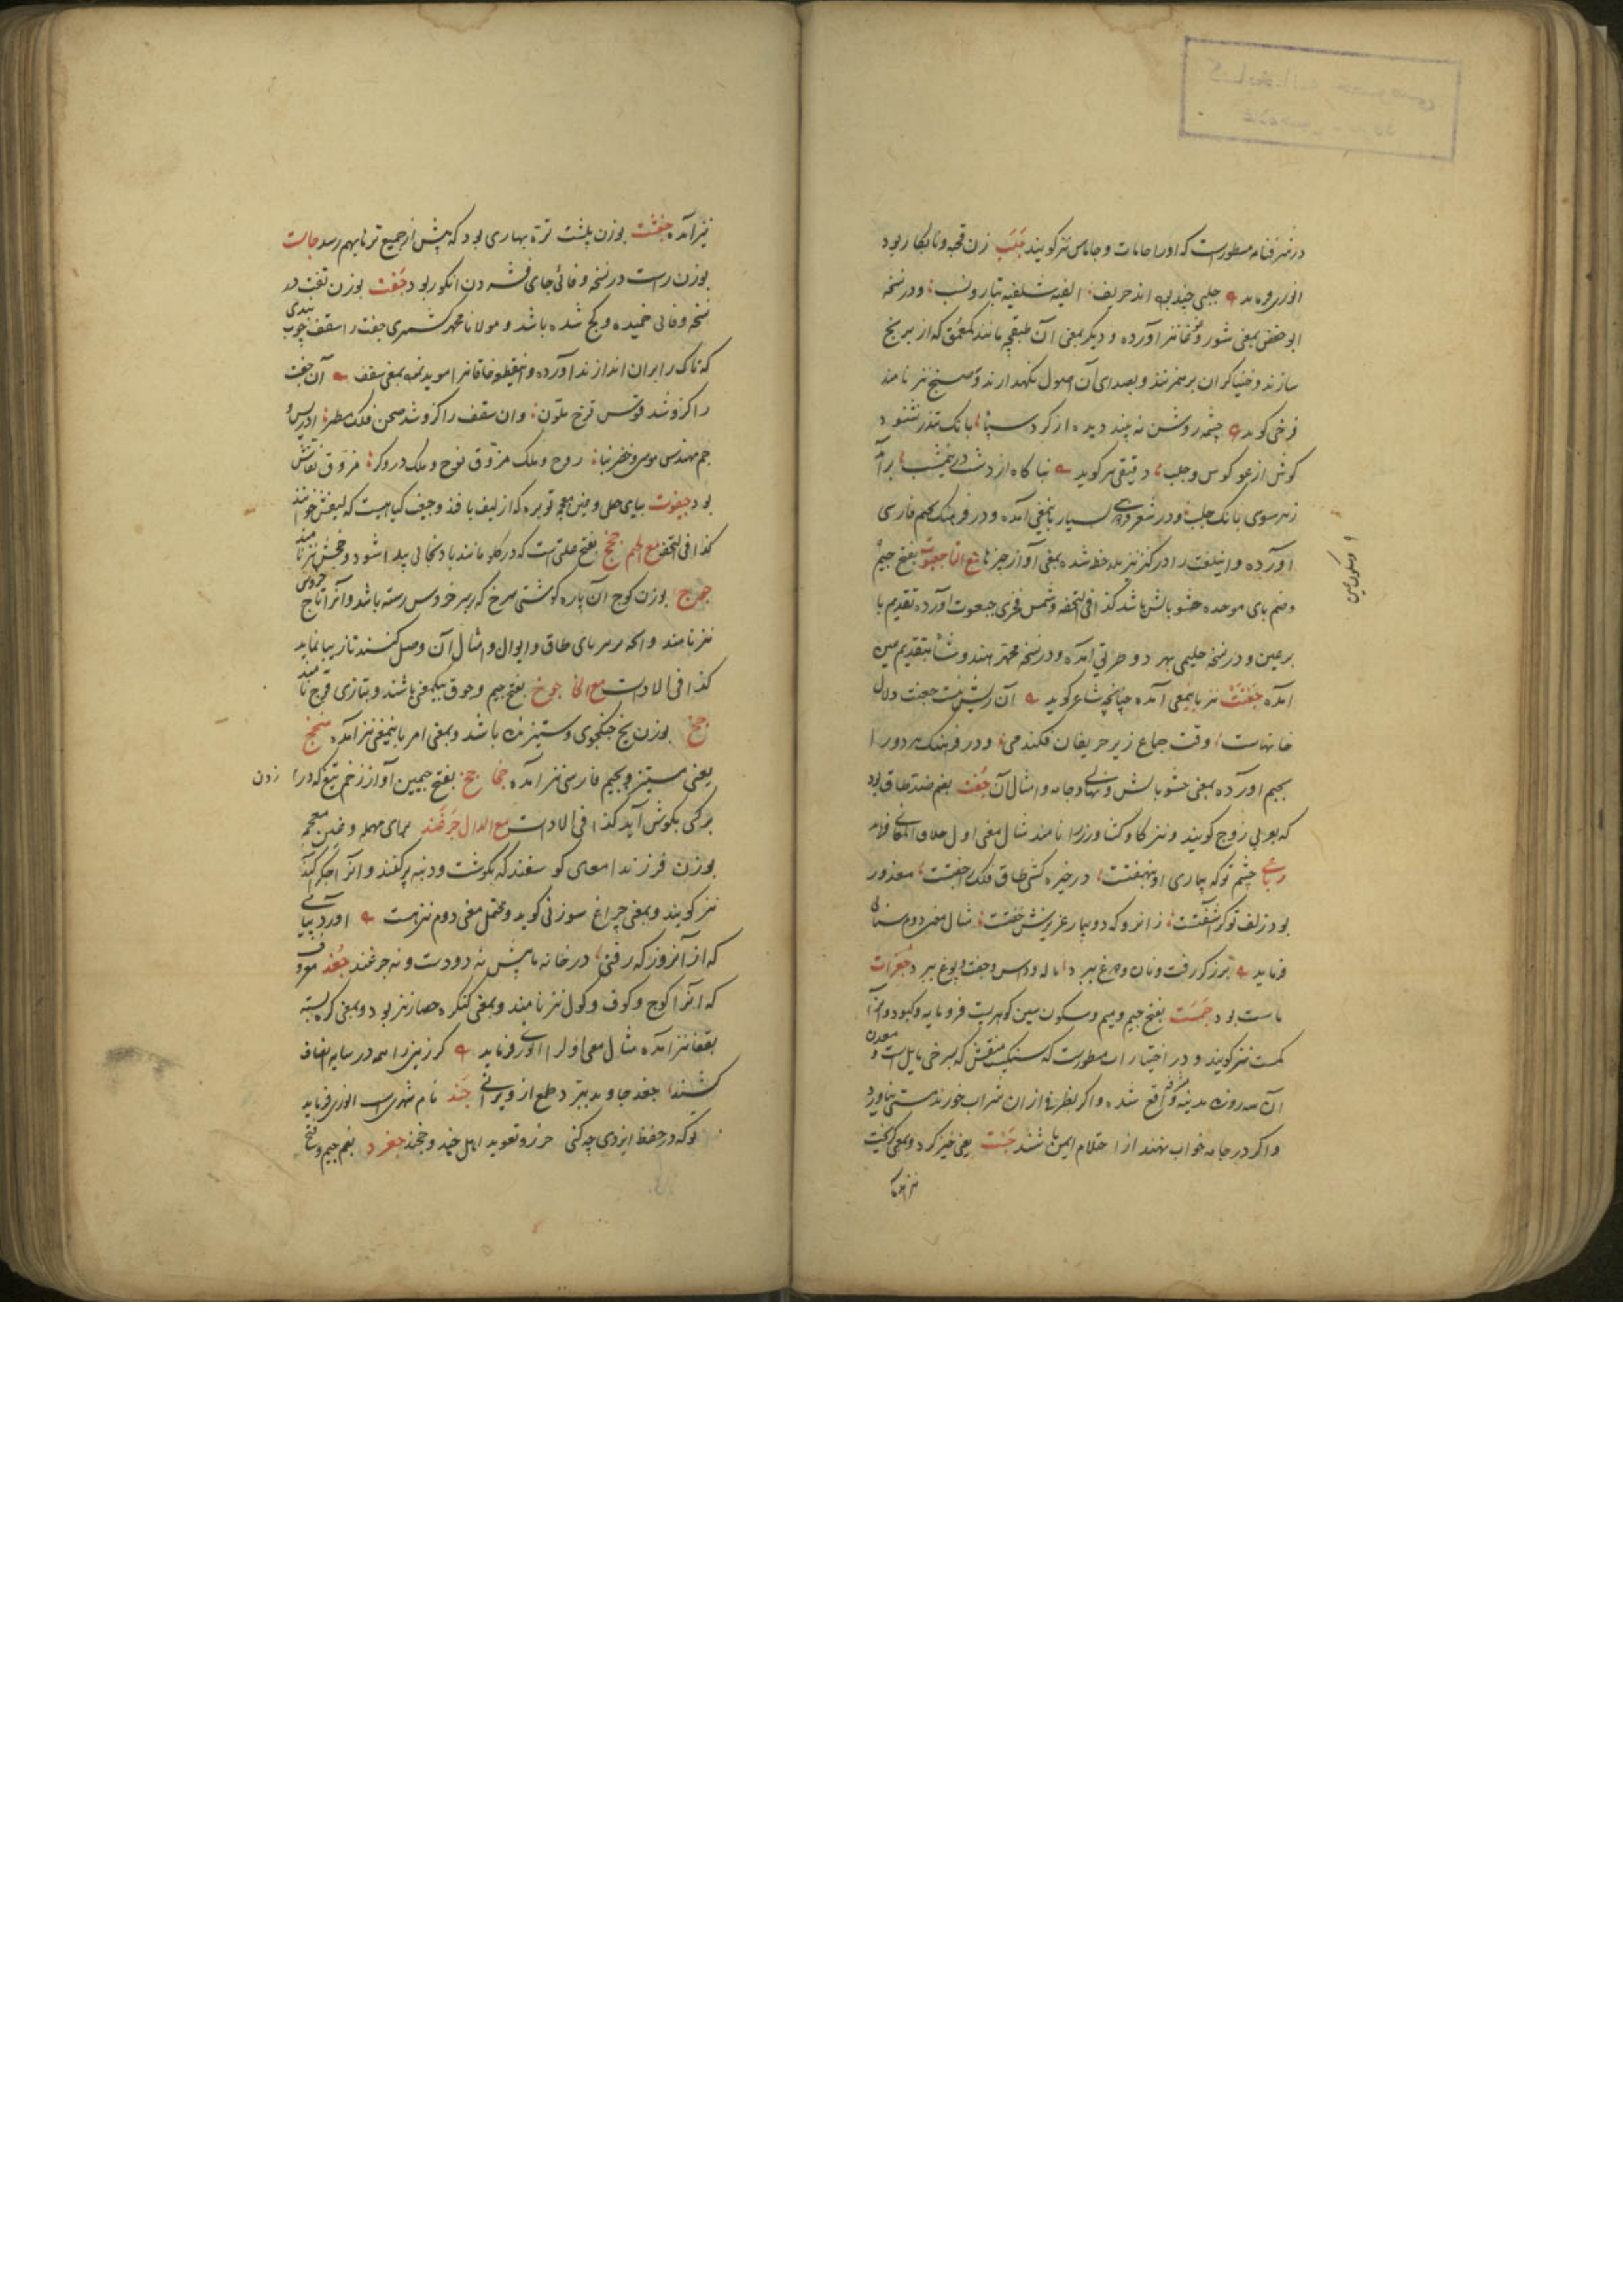 در شرفنامه مسطورست که او را جامات و جاماس نیز گویند جَلَب زن قحبه و نابکار بود
انوری فرماید جلبی چند اند حریف الفیه شلفیه تبار و نسب و در نسخه
ابو حفص بمعنی شور و غوغا نیز آورده و دیگر بمعنی آن طبقچه مانند کم عمق که از برنج
سازند و خنیاگران بر هم زنند و بصدای آن اصول نگهدارند و صنج نیز نامند
فرخی گوید چشمه روشن نه بیند دیده از گرد سپاه بانگ تندر نشنود
گوش از غو کوس و جلب دقیقی گوید بناگاه از دشت در نیمشب برآمد
ز هر سوی بانگ جلب و در شعر فردوسی بسیار باینمعنی آمده و در فرهنگ بجیم فارسی
آورده و اینلغت را در کنز نیز ملاحظه شده بمعنی آواز چیزها مع التا جعبوت بفتح جیم
و ضم بای موحده حشو بالش باشد کذا فی التحفه و شمس فخری جبعوت آورده بتقدیم با
بر عین و در نسخه حلیمی بهر دو طریق آمده و در نسخه محمد هندوشاه بتقدیم عین
آمده جغنت نیز باینمعنی آمده چنانچه شاعر گوید آن ریش نیست جغبت دلال
خانهاست وقت جماع زیر حریفان فکندمی و در فرهنگ هر دو را
بجیم آورده بمعنی حشو بالش و نهالی و جامه و امثال آن جُفت بضم ضد طاق بود
که بعربی زوج گویند و نیز گاو کشاورز را نامند مثال معنی اول خلاق المعانی فرماید
رباعی چشم تو که بیماری او نهفتست در خیره کشی طاق فلک را جفتست معذور
بود زلف تو گر آشفتست زانرو که دو بیمار عزیزش خفتست مثال معنی دوم سنائی
فرماید برزگر رفت و نان و دوغ ببرد و داس و جفت و یوغ ببرد جغرات
ماست بود جَمَست بفتح جیم و میم و سکون سین گوهریست فرومایه و کبود و آنرا
کمست نیز گویند و در اختیارات مسطورست که سنگیست منقش که بسرخی مایلست و معدن
آن سه روزه مدینه مشرفه واقع شده و اگر بظرفی از آن شراب خورند مستی نیاورد
و اگر در جامه خواب نهند از احتلام ایمن باشند جَست یعنی خیز کرد و بمعنی گریخت
نیز آمده
و سکون عین
نیز آمده جغشت بوزن بهشت تره بهاری بود که پیش از جمیع ترها بهم رسد جاست
بوزن راست در نسخه وفائی جای فشردن انگور بود جَفت بوزن تفت در
نسخه وفائی خمیده و کج شده باشد و مولانا محمد کشمیری جفت را سقف چوب بندی
که تاک را بر آن اندازند آورده و اینقطعه خاقانی را موید بمعنی سقف آن جفت
را کزو شد قوس قزح ملون وان سقف را کزو شد صحن فلک مطرا ادریس و
جم مهندس موسی و خضر بنا روح و ملک مزوق نوح و ملک دروگر مزوق نقاش
بود جیغوت بیای حطی و غین معجمه توبره که از لیف بافند و جیغ گیاهیست که لیفش خوانند
کذا فی التحفه مع الجیم جخج بفتح علتی است که در گلو مانند بادنجانی پیدا شود و جخش نیز نامند
جوج بوزن کوچ آن پاره گوشتی سرخ که بر سر خروس رسته باشد و آنرا تاج خروس
نیز نامند و آنچه بر سر بای طاق و ایوان و امثال آن وصل کنند تا زیبا نماید
کذا فی الادات مع الخا جوخ بفتح جیم و جوق بیکمعنی باشند و بتازی فوج نامند
جخ بوزن یخ جنگجوی و ستیزنده باشد و بمعنی امر باینمعنی نیز آمده مجخ
یعنی مستیز و بجیم فارسی نیز آمده جخا جخ بفتح جیمین آواز زخم تیغ که در زدن
بر کسی بگوش آید کذا فی الادات مع الدال جَرغَند برای مهمله و غین معجمه
بوزن فرزند امعای گوسفند که بگوشت و دنبه پر کنند و آنرا جگرآگند
نیز گویند و بمعنی چراغ سوزنی گوید و محتمل معنی دوم نیز هست
که از آن روز که رفتی در خانه ما پیش نه دودست و نه جرغند جُغد معروف
که آنرا کوچ و کوف و کول نیز نامند و بمعنی کنگره حصار نیز بود و بمعنی گره بسته
بقفا نیز آمده مثال معنی اول را انوری فرماید گر زین را همه در سایه انصاف
کشند جغد جاوید ببرد طمع از ویرانی جَند نام شهریست انوری فرماید
توکه در حفظ ایزدی چه کنی حرز و تعوید اهل جند و خجند جغرد بضم جیم و فتح